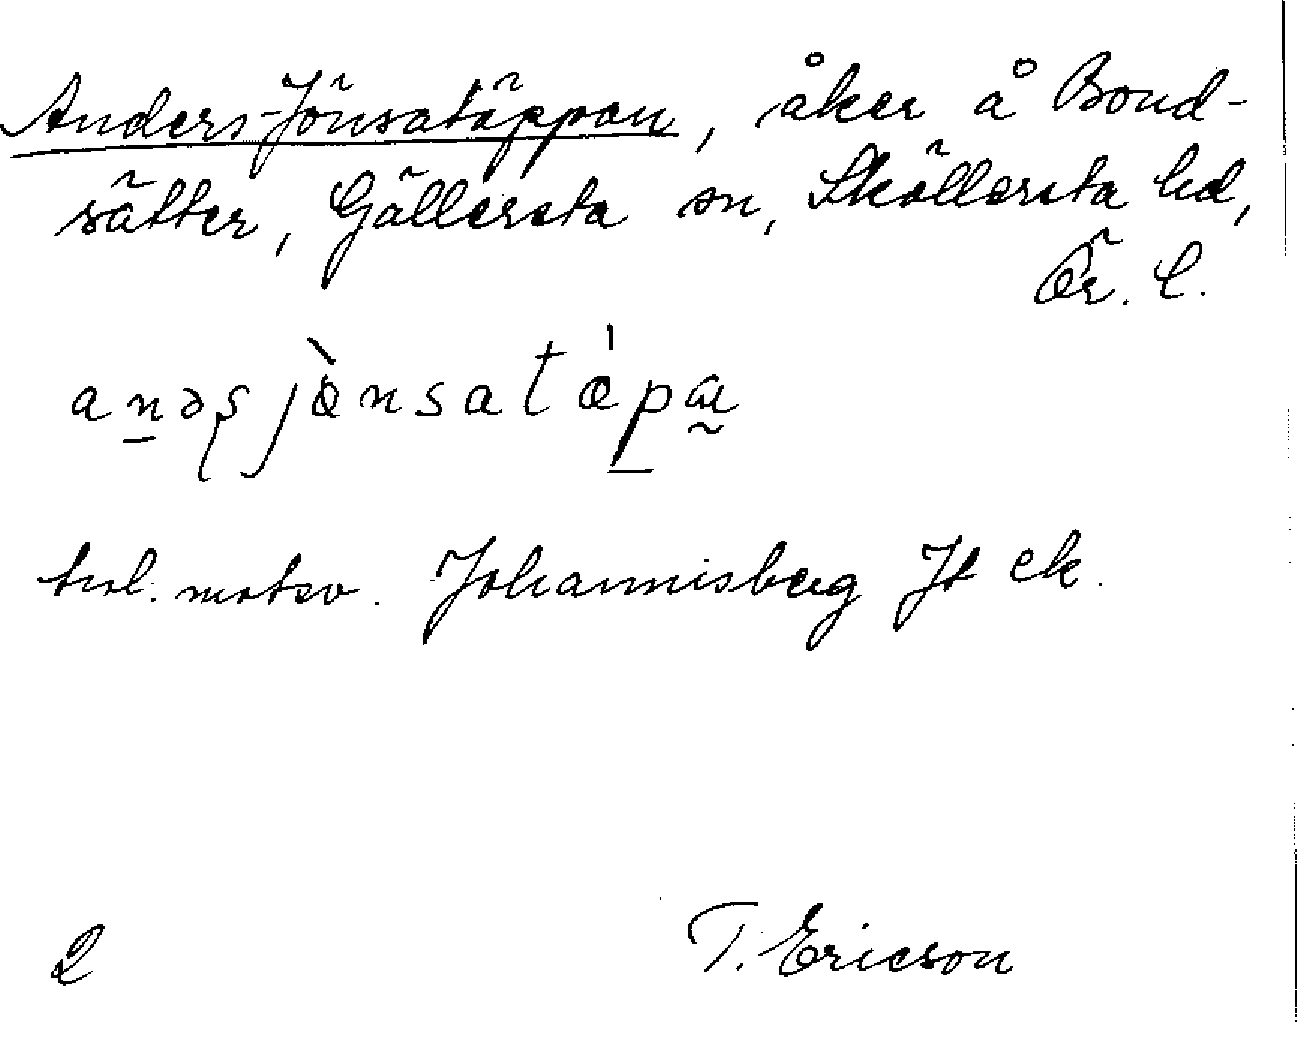 Anders-Jönsatäppan, åker å Bond-
sätter, Gällersta sn, Sköllersta hd,
Ör. l.
anəʂjɵ̀nsatǽpa
motsv. Johannisberg Jt ek.
2 T. Ericson